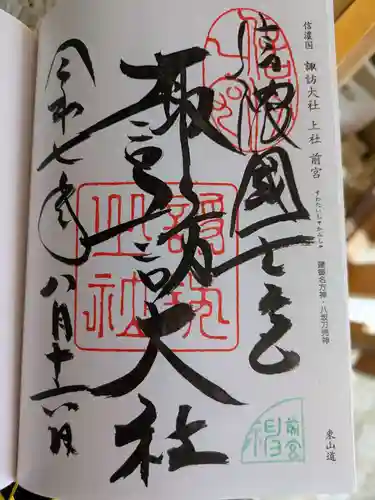 信濃国 諏訪大社 上社 前宮 すわたいしゃかみしゃ
建御名方神・八坂刀売神
東山道
信濃國一之宮
諏訪大社
令和七年八月十六日
諏訪上社
前宮